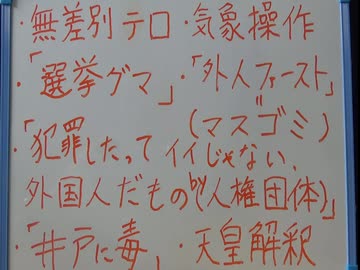 ・無差別テロ ・気象操作
・「選挙グマ」 ・「外人ファースト」
(マズゴミ)
・「犯罪したってイイじゃない、
外国人だもの by(人権団体)」
・「井戸に毒」 ・天皇解釈